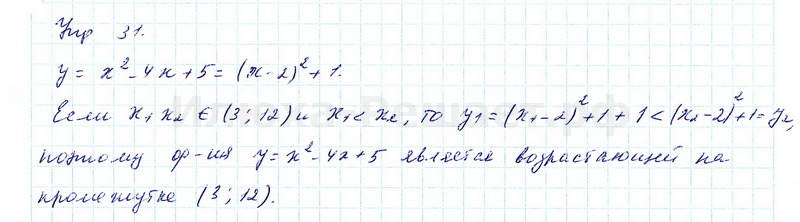 Упр 31.
y = x² - 4x + 5 = (x - 2)² + 1.
Если x₁ x₂ ∈ (3; 12) и x₁ < x₂, то y₁ = (x₁ - 2)² + 1 + 1 < (x₂ - 2)² + 1 = y₂,
поэтому ф-ия y = x² - 4x + 5 является возрастающей на
промежутке (3; 12).